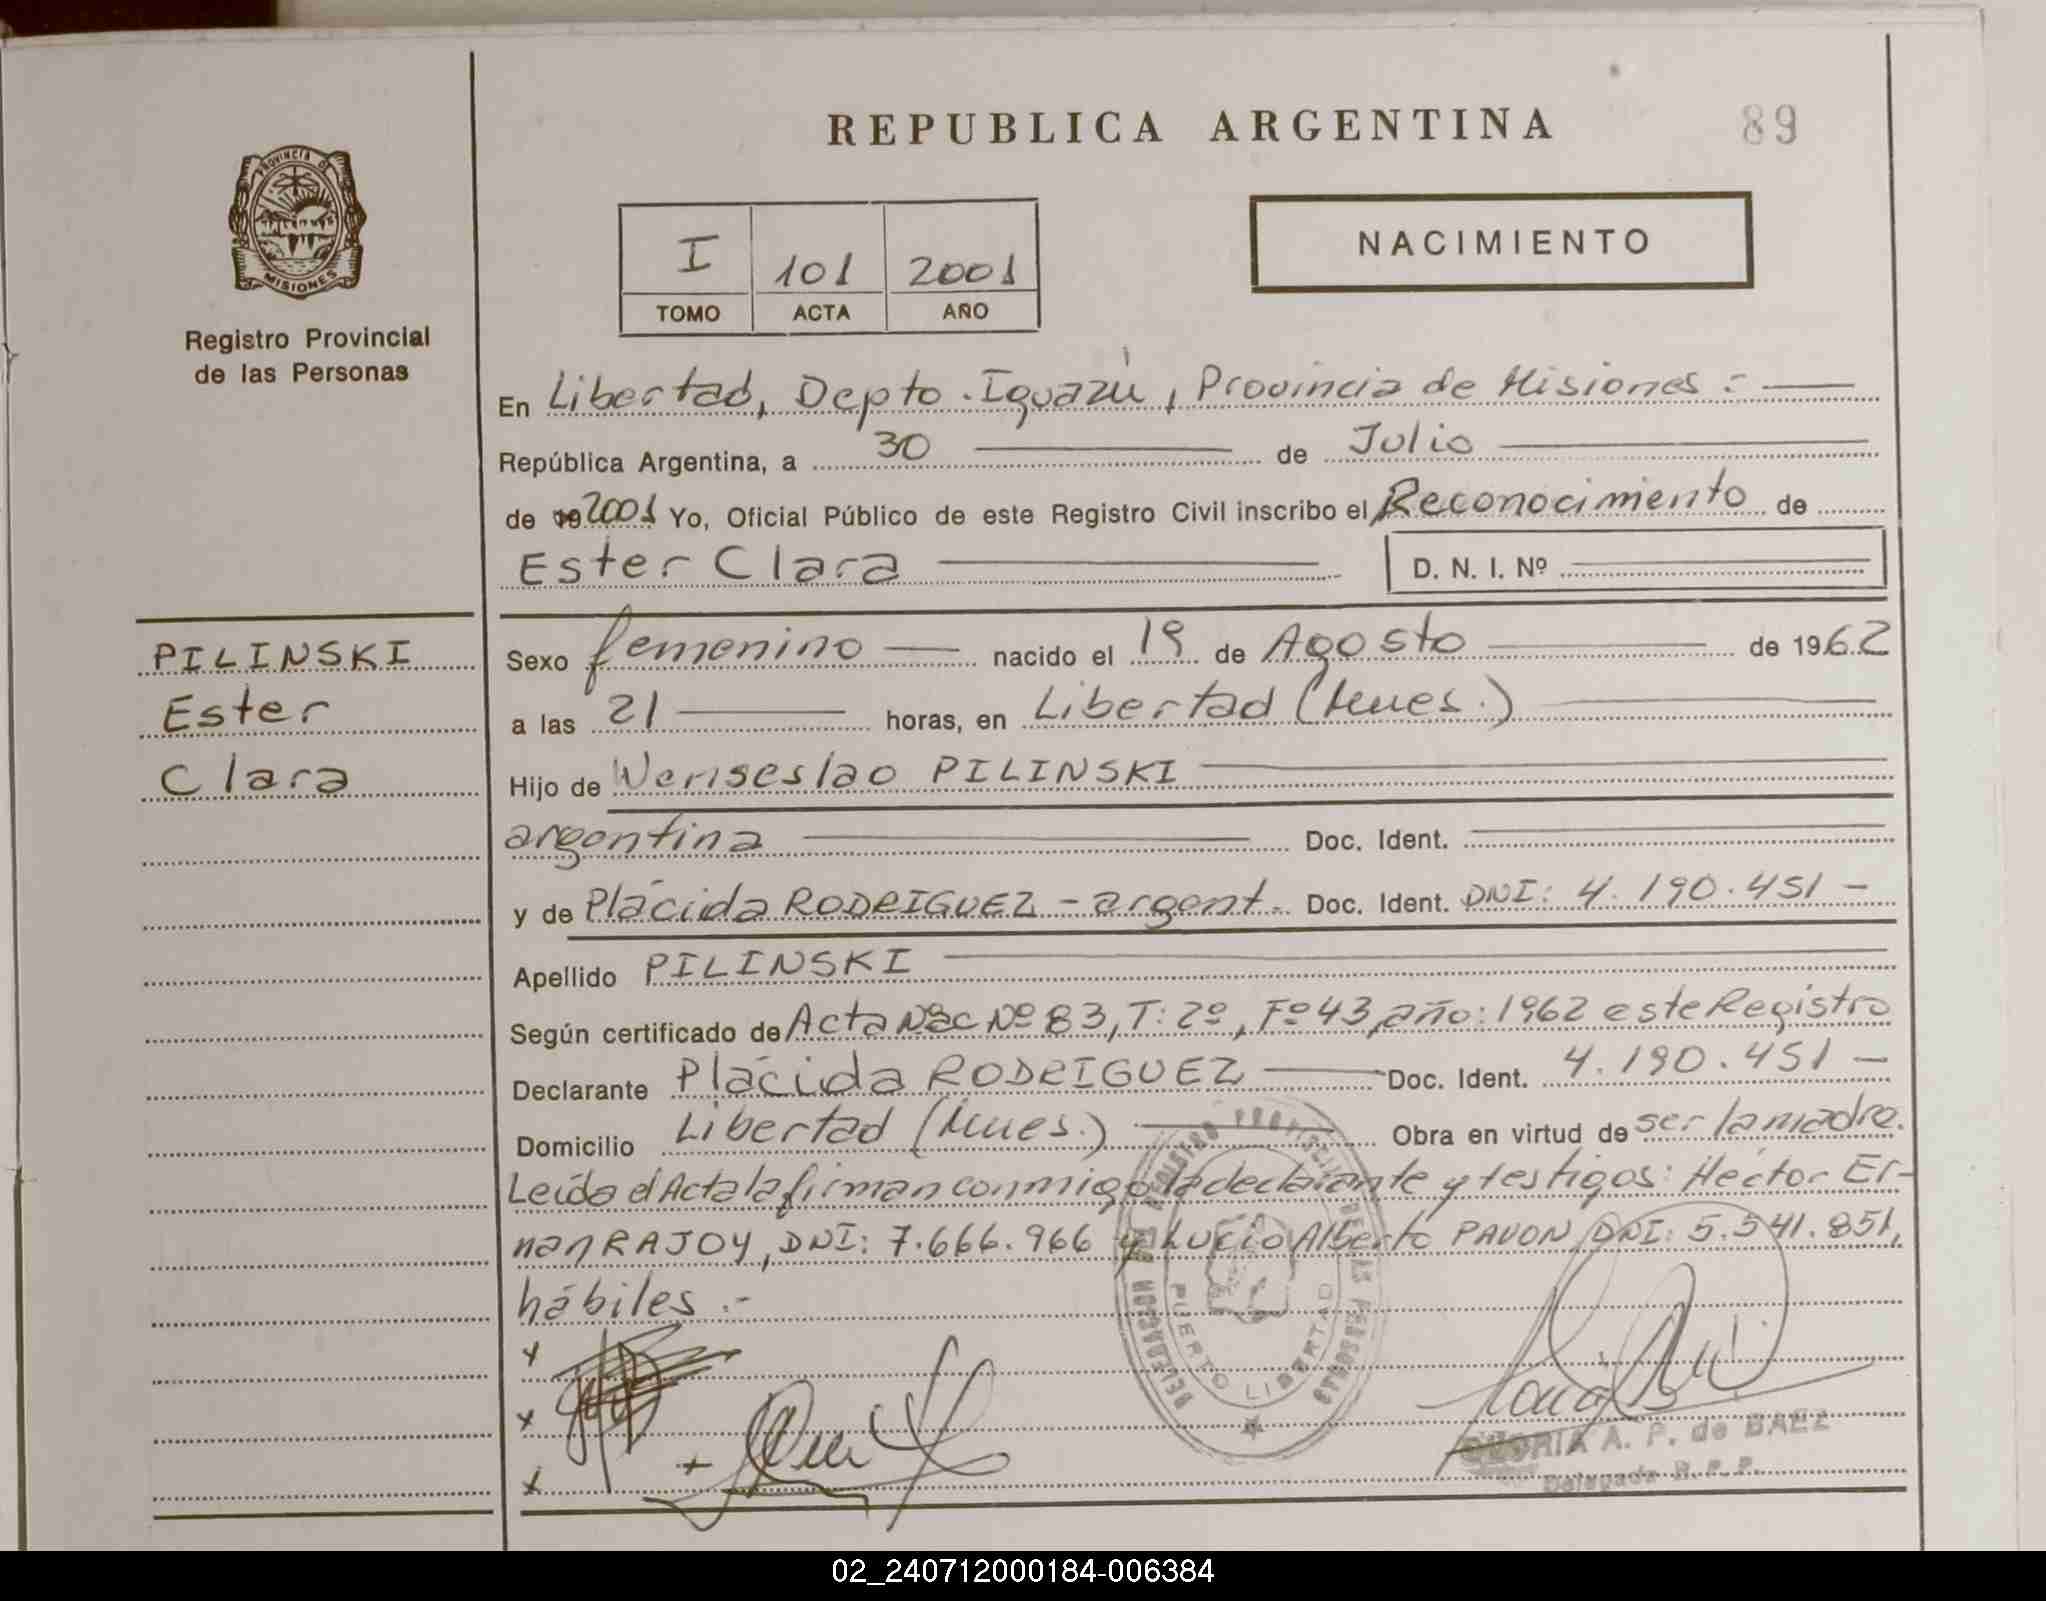 REPUBLICA ARGENTINA
89
PROVINCIA DE
MISIONES
Registro Provincial
de las Personas
I 101 2001
TOMO ACTA AÑO
NACIMIENTO
En Libertad, Depto. Iguazú, Provincia de Misiones :-
República Argentina, a 30 de Julio
de 2001 Yo, Oficial Público de este Registro Civil inscribo el Reconocimiento de
Ester Clara D. N. I. Nº
PILINSKI
Ester
Clara
Sexo femenino nacido el 19 de Agosto de 1962
a las 21 horas, en Libertad (Mnes.)
Hijo de Wenseslao PILINSKI
argentina Doc. Ident.
y de Plácida RODRIGUEZ - argent. Doc. Ident. DNI: 4.190.451 -
Apellido PILINSKI
Según certificado de Acta Nac Nº 83, T: 2º, Fº 43, año: 1962 este Registro
Declarante Plácida RODRIGUEZ Doc. Ident. 4.190.451 -
Domicilio Libertad (Mnes.) Obra en virtud de ser la madre.
Leída el Acta la firman conmigo la declarante y testigos: Héctor Er-
nan RAJOY, DNI: 7.666.966 y Lucio Alberto PAVON DNI: 5.541.851,
hábiles .-
DELEGACION DEL REGISTRO PROVINCIAL DE LAS PERSONAS
PUERTO LIBERTAD
A. P. de BAEZ
Delegada R. P. P.
02_240712000184-006384